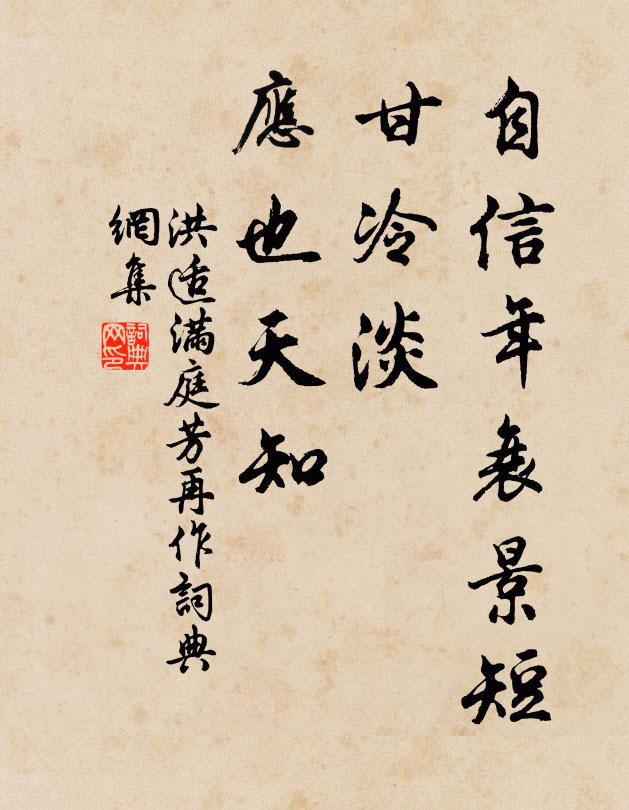 自信年衰景短
甘冷淡
應也天知
洪适滿庭芳再作詞典
網集
詞典
网印